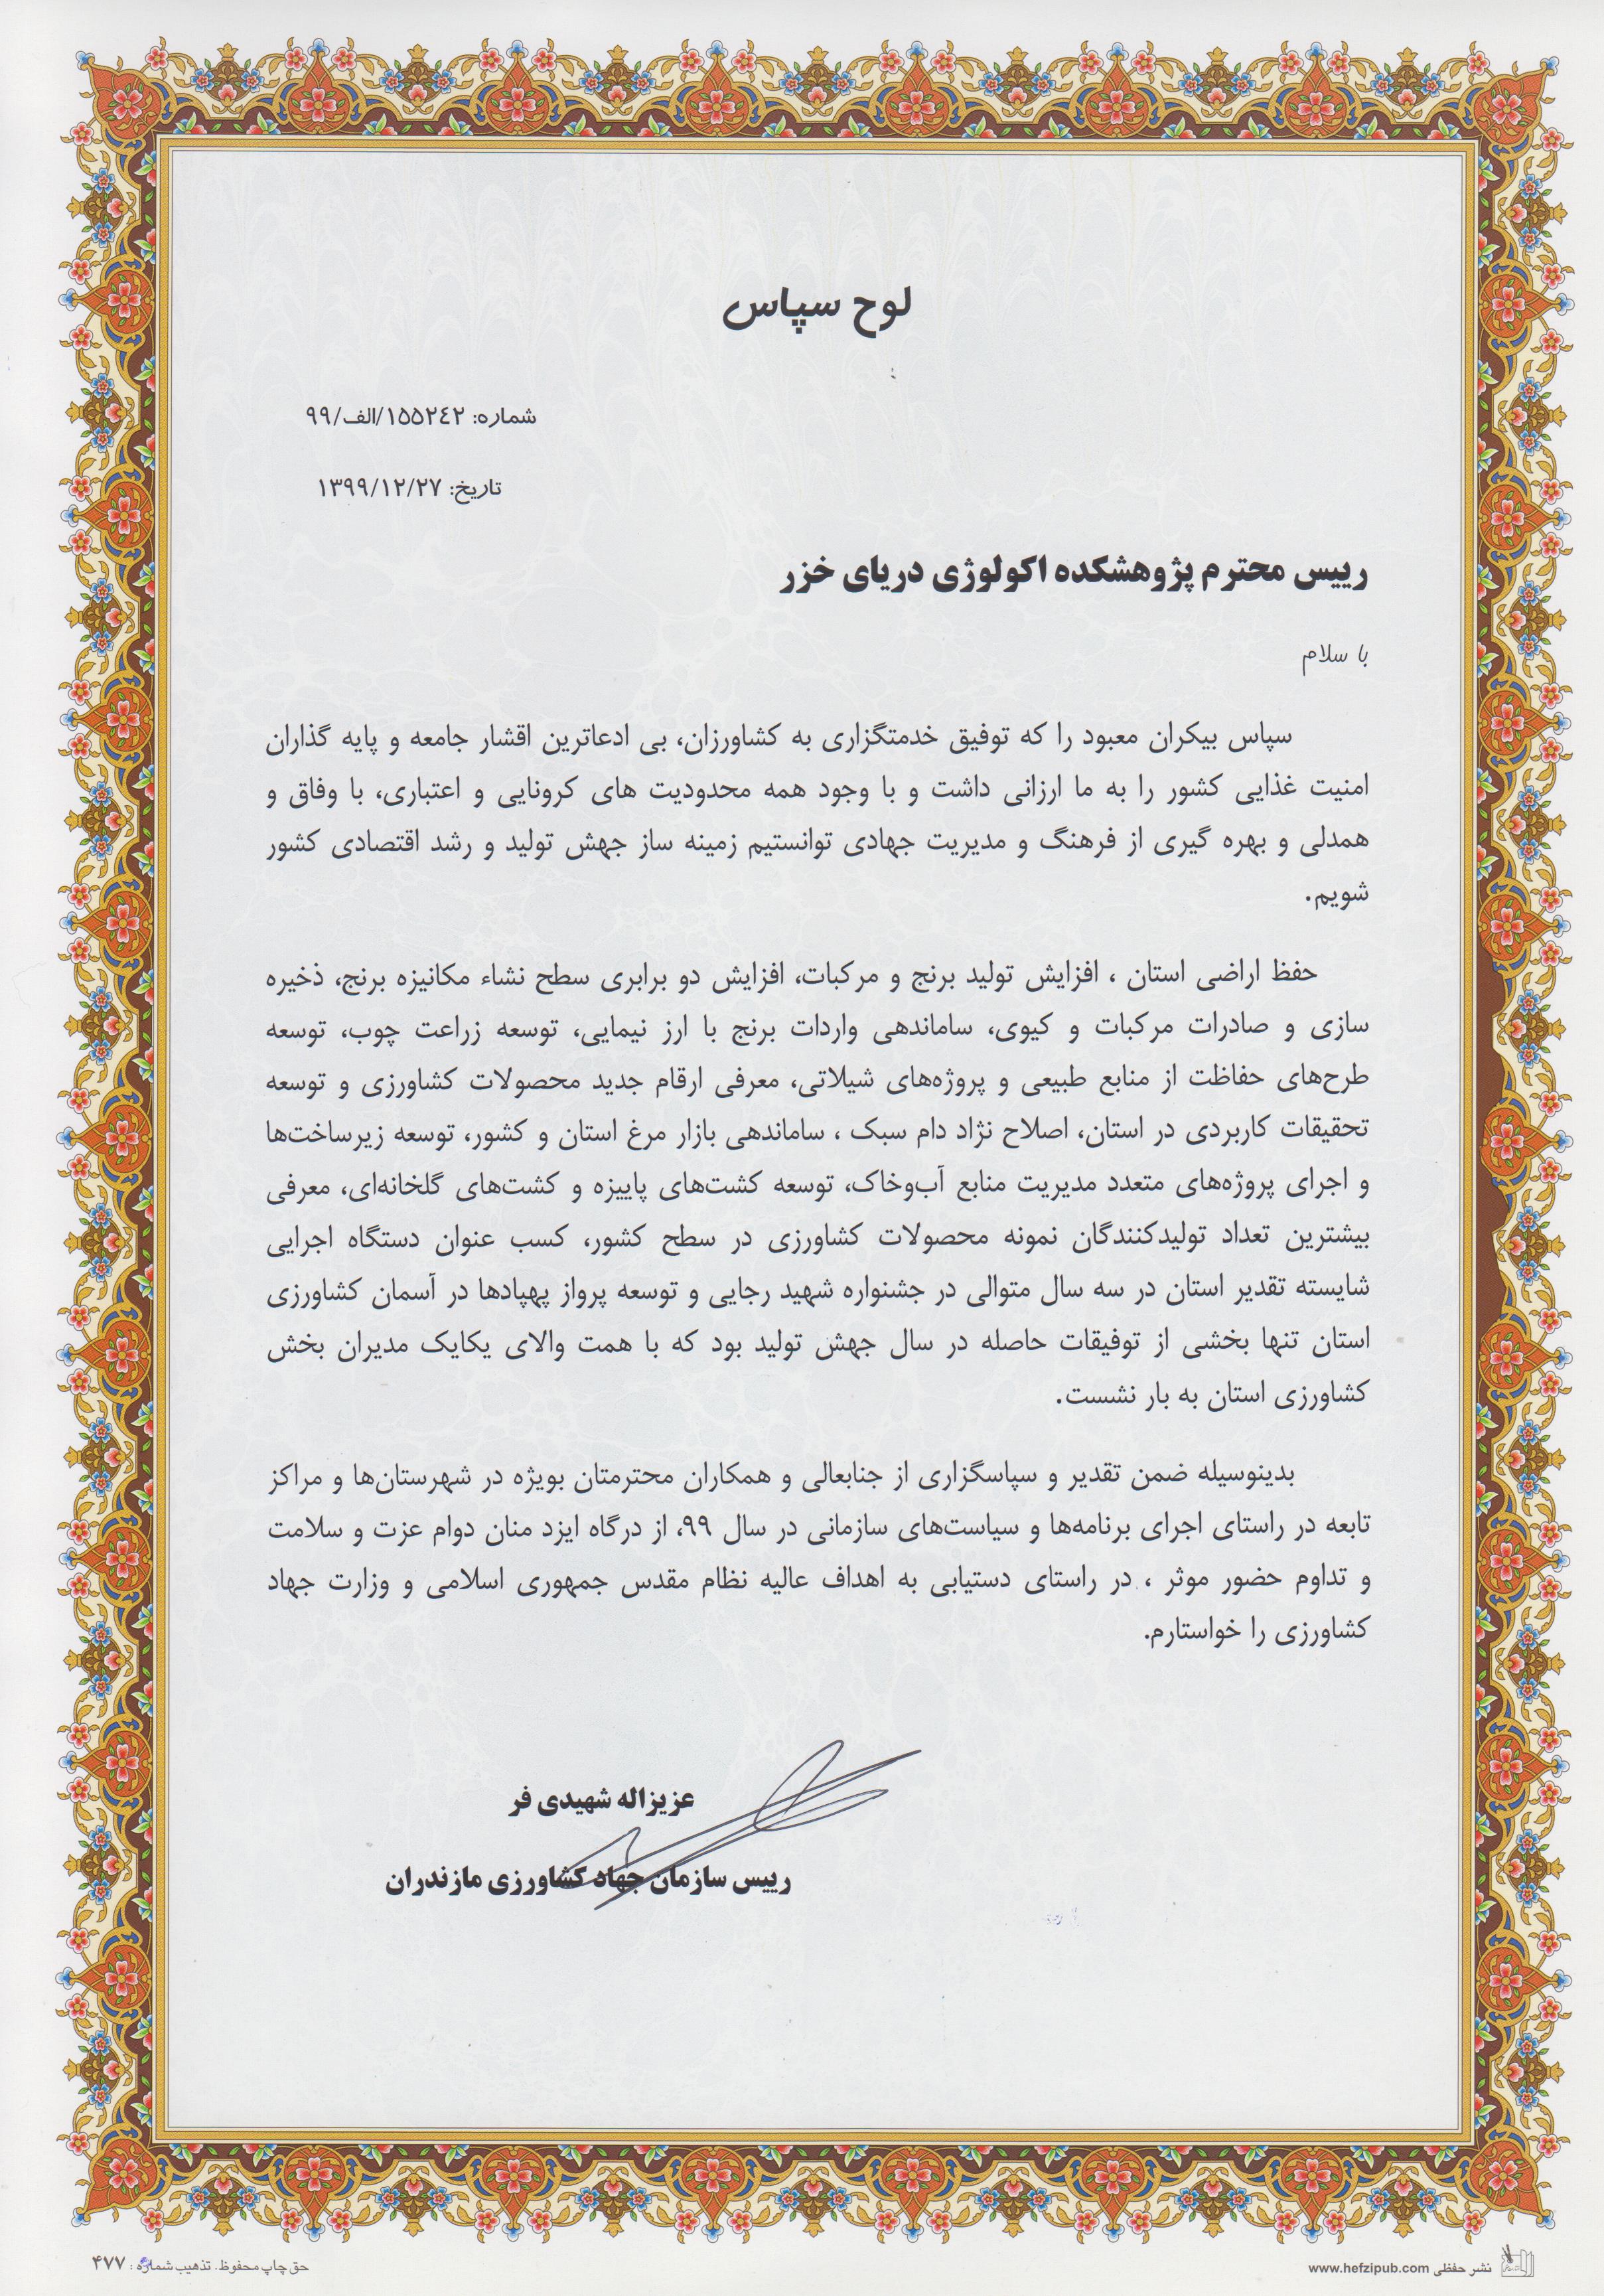 لوح سپاس
شماره: ۱۵۵۲۴۲/الف/۹۹
تاریخ: ۱۳۹۹/۱۲/۲۷
رییس محترم پژوهشکده اکولوژی دریای خزر
با سلام
سپاس بیکران معبود را که توفیق خدمتگزاری به کشاورزان، بی ادعاترین اقشار جامعه و پایه گذاران
امنیت غذایی کشور را به ما ارزانی داشت و با وجود همه محدودیت های کرونایی و اعتباری، با وفاق و
همدلی و بهره گیری از فرهنگ و مدیریت جهادی توانستیم زمینه ساز جهش تولید و رشد اقتصادی کشور
شویم.
حفظ اراضی استان ، افزایش تولید برنج و مرکبات، افزایش دو برابری سطح نشاء مکانیزه برنج، ذخیره
سازی و صادرات مرکبات و کیوی، ساماندهی واردات برنج با ارز نیمایی، توسعه زراعت چوب، توسعه
طرح‌های حفاظت از منابع طبیعی و پروژه‌های شیلاتی، معرفی ارقام جدید محصولات کشاورزی و توسعه
تحقیقات کاربردی در استان، اصلاح نژاد دام سبک ، ساماندهی بازار مرغ استان و کشور، توسعه زیرساخت‌ها
و اجرای پروژه‌های متعدد مدیریت منابع آب‌وخاک، توسعه کشت‌های پاییزه و کشت‌های گلخانه‌ای، معرفی
بیشترین تعداد تولیدکنندگان نمونه محصولات کشاورزی در سطح کشور، کسب عنوان دستگاه اجرایی
شایسته تقدیر استان در سه سال متوالی در جشنواره شهید رجایی و توسعه پرواز پهپادها در آسمان کشاورزی
استان تنها بخشی از توفیقات حاصله در سال جهش تولید بود که با همت والای یکایک مدیران بخش
کشاورزی استان به بار نشست.
بدینوسیله ضمن تقدیر و سپاسگزاری از جنابعالی و همکاران محترمتان بویژه در شهرستان‌ها و مراکز
تابعه در راستای اجرای برنامه‌ها و سیاست‌های سازمانی در سال ۹۹، از درگاه ایزد منان دوام عزت و سلامت
و تداوم حضور موثر ، در راستای دستیابی به اهداف عالیه نظام مقدس جمهوری اسلامی و وزارت جهاد
کشاورزی را خواستارم.
عزیزاله شهیدی فر
رییس سازمان جهاد کشاورزی مازندران
نشر حفظی www.hefzipub.com
حق چاپ محفوظ. تذهیب شماره : ۴۷۷